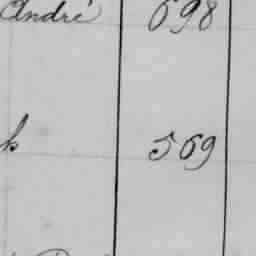 André 698
k 569